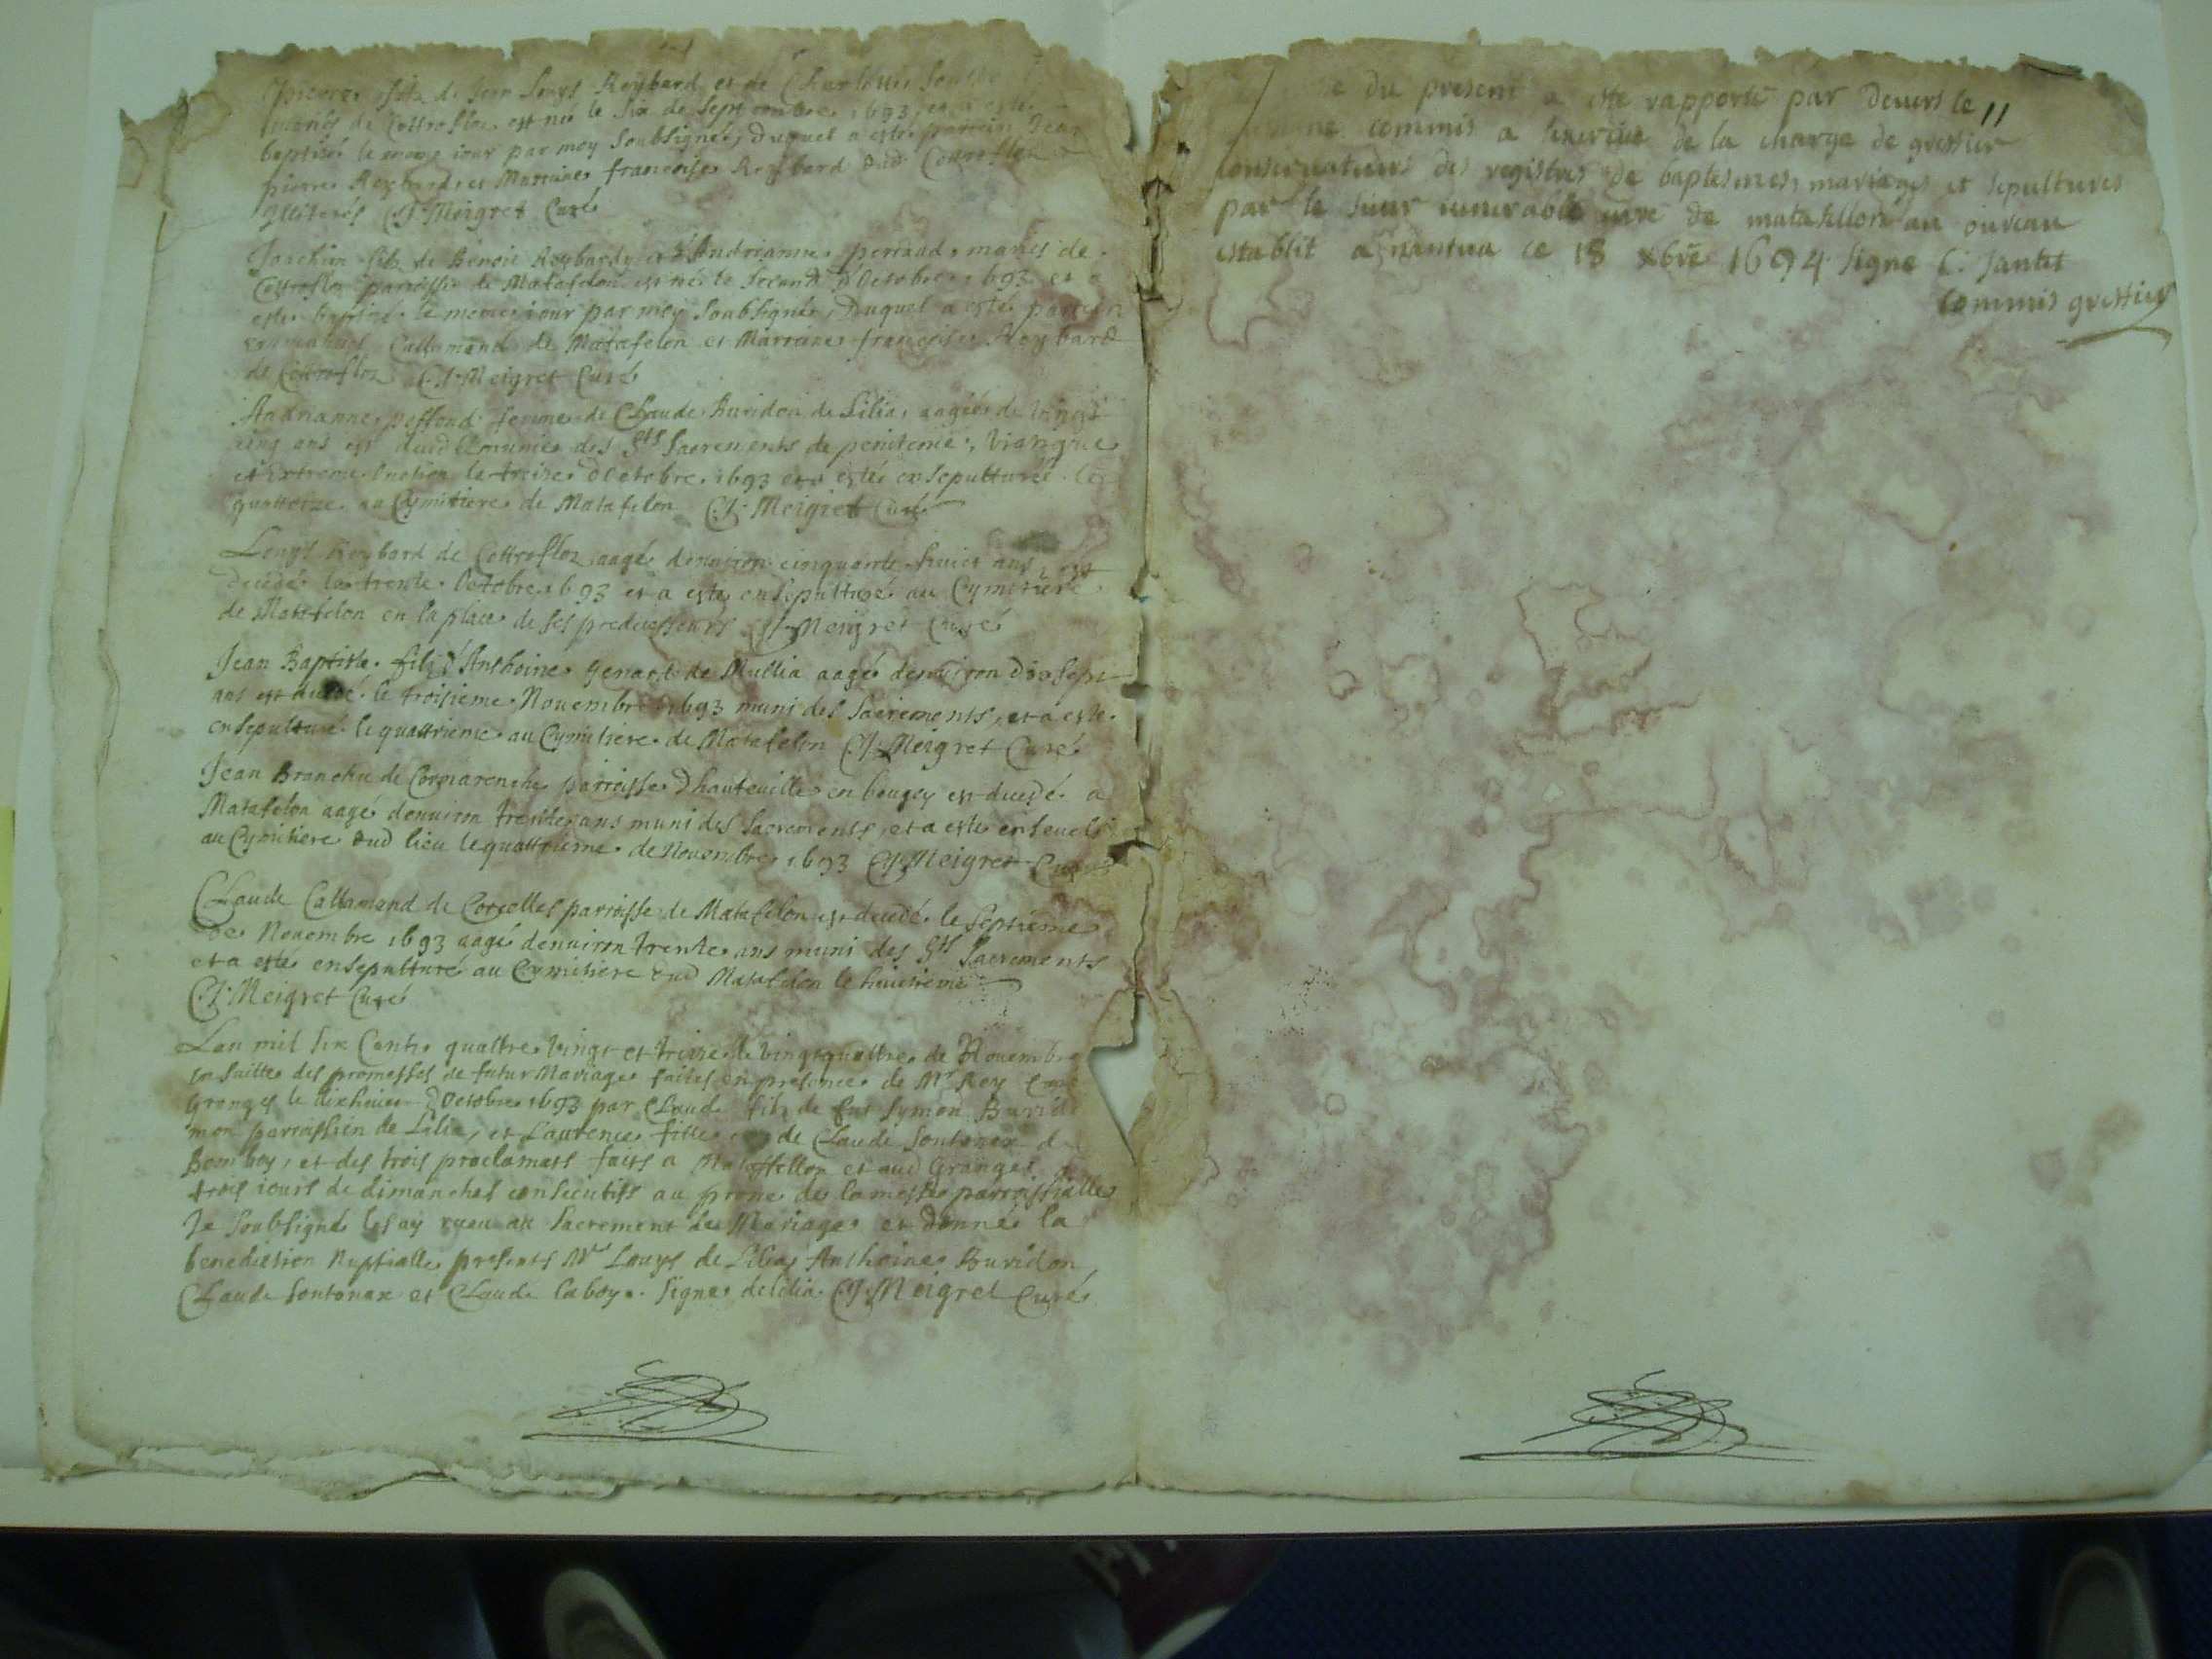 pierre filz de Jean Louys Reybard et de Charlotte
mariés de Cottroflos est né le six de septembre 1693 et a esté
baptisé le mesme iour par moy soubsigné, duquel a esté parrain Jean
pierre Reybard et Marraine francoise Reybard dud Cottroflos
Illiterés C.J. Meigret Curé
Joachim filz de Benoit Reybard et d'Andrianne perraud mariés de
Cottroflos parroisse de Matafelon est né le second d'Octobre 1693 et a
esté baptisé le mesme iour par moy soubsigné, Duquel a esté parrain
Callamand de Matafelon et Marraine francoise Reybard
de Cottroflos C.J. Meigret Curé
Andrianne poffond femme de Claude Buridon de Lilia aagée de vingt
cinq ans est decedé munie des Sts Sacrements de penitence, viatique
et Extreme Onction le treize d'Octobre 1693 et a esté ensepulturée le
quattorze au Cymitiere de Matafelon C.J. Meigret Curé
Louys Reybard de Cottroflos aagé denuiron cinquante huict ans, est
decedé le trente Octobre 1693 et a esté ensepulturé au Cymitiere
de Matafelon en la place de ses predecesseurs C.J. Meigret Curé
Jean Baptiste filz d'Anthoine Genaot de Mullia aagé denuiron dix sept
ans est decedé le troisieme Nouembre 1693 muni des Sacrements, et a esté
ensepulturé le quattrieme au Cymitiere de Matafelon C.J. Meigret Curé
Jean Branche de Cormarenche parroisse d'hauteuille en bougey est decedé a
Matafelon aagé denuiron trente ans muni des Sacrements, et a esté enseueli
au Cymitiere dud lieu le quattrieme de Nouembre 1693 C.J. Meigret Curé
Claude Callamand de Corcelles parroisse de Matafelon est decedé le septieme
de Nouembre 1693 aagé denuiron trente ans muni des Sts Sacrements
et a esté ensepulturé au Cymitiere dud Matafelon le huitieme
C.J. Meigret Curé
Lan mil six Cents quattre vingt et treize le vingtquattre de Nouembre
en suitte des promesses de futur Mariage faites en presence de Mr Rey Curé
Granges le dixhuict d'Octobre 1693 par Claude filz de fut Symon Burid
mon parroissien de Lilia, et Laurence fille de Claude Sontonax d
Bomboy, et des trois proclamats faits a Mataffellon et aud Granges
trois iours de dimanches consecutifs au prone de la messe parroissialle
Je soubsigné les ay receu au Sacrement de Mariage et donné la
benediction Nuptialle presents Mre Louys de Lilia Anthoine Buridon
Claude Sontonax et Claude Caboy. Signé delilia C.J. Meigret Curé
e du present a este rapporte par deuers le 11
commis a lexercice de la charge de greffier
conseruateurs des registres de baptesmes, mariages et sepultures
par le sieur venerable cure de matafellon au bureau
establit a nantua ce 18 xbre 1694 signe C. Jantet
commis greffier